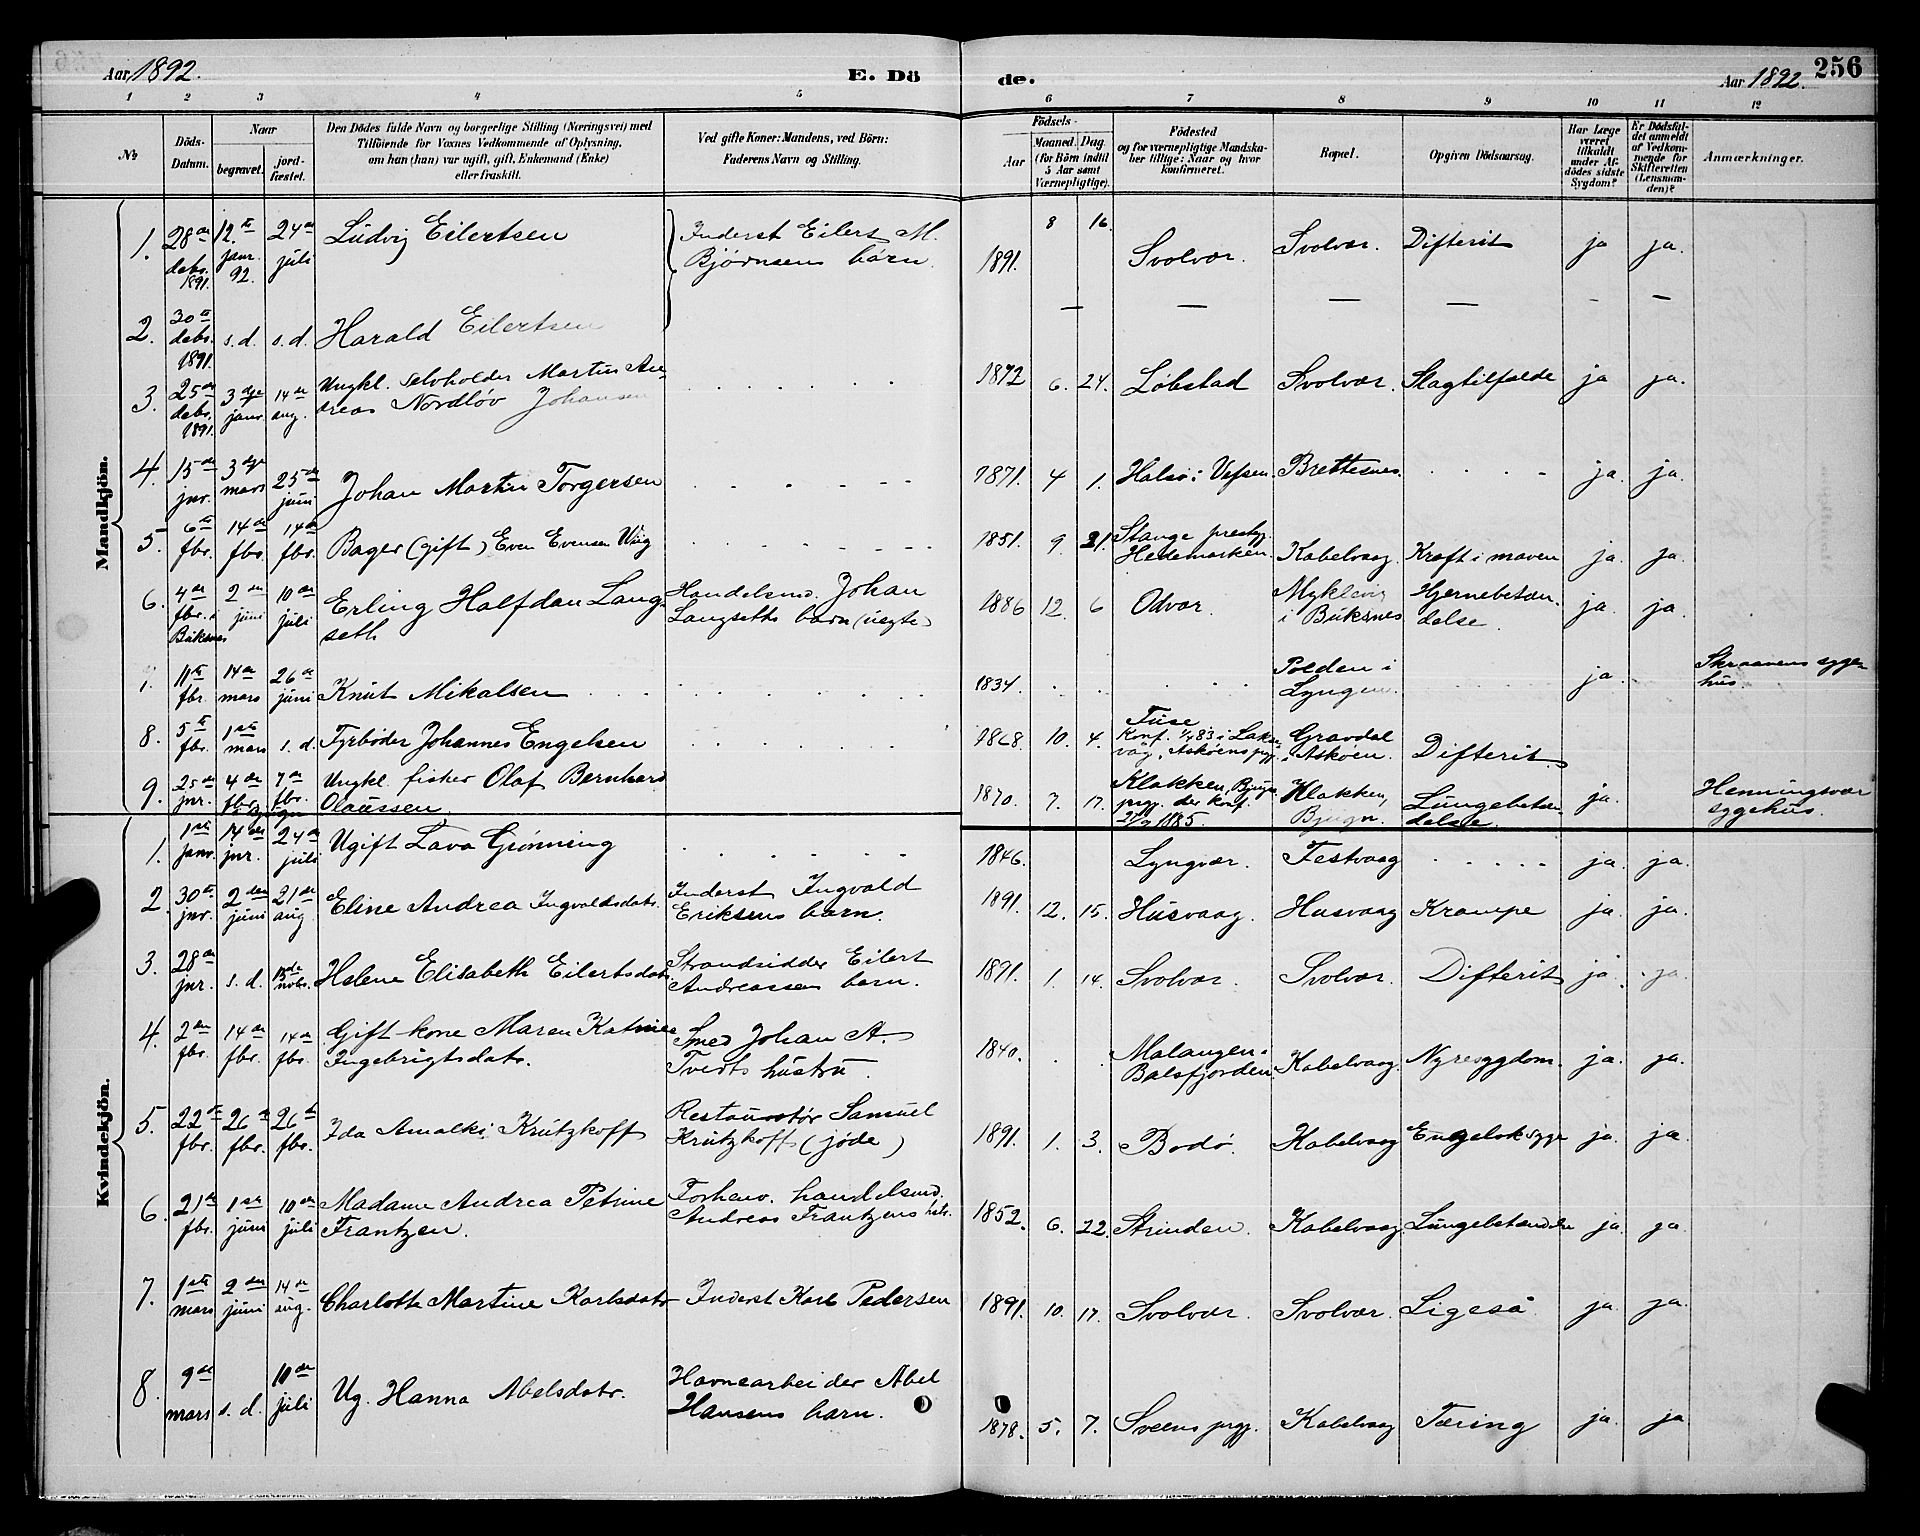 Aar 1892.
E. Dö
de.
Aar 1892.
256
1 2 3 4 5 6 7 8 9 10 11 12
№
Döds-Datum.
Naar
begravet.
jord-fæstet.
Den Dödes fulde Navn og borgerlige Stilling (Næringsvei) med
Tilföiende for Voxnes Vedkommende af Oplysning,
om han (hun) var ugift, gift, Enkemand (Enke)
eller fraskilt.
Ved gifte Koner: Mandens, ved Börn:
Faderens Navn og Stilling.
Födsels-
Aar
Maaned. Dag.
(for Börn indtil
5 Aar samt
Værnepligtige).
Födested
og for værnepligtige Mandska-
ber tillige: Naar og hvor
konfirmeret.
Bopæl.
Opgiven Dödsaarsag.
Har Læge
været
tilkaldt
under Af-
dödes sidste
Sygdom?
Er Dödsfal-
det anmeldt
af Vedkom-
mende for
Skifteretten
(Lensman-
den)?
Anmærkninger.
Mandkjön.
1. 28de debr. 1891. 12te janr. 92. 24de juli Ludvig Eilertsen Inderst Eilert M. Bjørnsens barn. 1891. 8 16. Svolvær. Svolvær. Difterit ja ja.
2. 30te debr. 1891. s.d. s.d. Harald Eilertsen — — — — - —
3. 25de debr. 1891. 3dje janr. 14de aug. Ungkl. selvholder Martin An-
dreas Nordløv Johansen 1872 6. 24. Løbstad Svolvær. Slagtilfælde ja ja.
4. 15de jnr. 3dje mars 25de juni Johan Martin Torgersen 1871. 4 1. Halsø i Vefsen. Brettesnes. ja. ja
5. 6te fbr. 14de fbr. 14de fbr. Bager (gift) Even Evensen Wiig 1851. 9 21. Stange prestgj. Hedemarken. Kabelvaag. Kræft i maven ja. ja
6. 4de fbr. i Buksnes 2den juni 10de juli Erling Halfdan Lang-
seth Handelsmd. Johan Langseths barn (uegte) 1886 12. 6 Odvær. Myklevig i Buksnes Hjernebetæn-
delse. ja. ja.
7. 11te fbr. 14de mars 26de juni Knut Mikalsen 1834. Polden i Lyngen. ja. Skraavens syge-
hus.
8. 5te fbr. 1ste mars s.d. Fyrbøder Johannes Engelsen 1868. 10. 4. Fuse Konf. 1/4 83 i Laks-
våg, Askøens pgj. Gravdal i Askøen. Difterit.
9. 25de jnr. 4de fbr. 7de fbr. Ungkl. fisker Olaf Bernhard
Olaussen. 1870. 7. 17. Klakken, Bjugn prgj. der konf. 27/9 1885. Klakken, Bjugn. Lungebetæn-
delse. ja. Henningsvær
sygehus.
Kvindekjön.
1. 1ste janr. 14de jnr. 24de juli Ugift Lava Grønning 1846. Lyngvær. Festvaag ja. ja.
2. 30te jnr. 2den juni 21de aug. Eline Andrea Ingvaldsdatr. Inderst Ingvald Eriksens barn. 1891. 12. 15. Husvaag. Husvaag Krampe ja. ja.
3. 28de jnr. s.d. 13de nobr. Helene Elisabeth Eilertsdatr. Strandsidder Eilert Andreassens barn. 1891. 1. 14. Svolvær. Svolvær. Difterit ja. ja.
4. 2den fbr. 14de fbr. 14de fbr. Gift kone Maren Katrine
Ingebrigtsdatr. Smed Johan A. Tverts hustru. 1840. Malangen i Balsfjorden. Kabelvaag. Nyresygdom. ja. ja.
5. 22de fbr. 26de fbr. 26de fbr. Ida Amalki Krutzkoff Restauratør Samuel Krutzkoff (jøde) 1891. 1. 3. Bodø. Kabelvaag Engelsk syge ja. ja.
6. 21de fbr. 1ste juni 10de juli Madame Andrea Petrine
Frantzen. Forhenv. handelsmd. Andreas Frantzens hstr. 1852. 6. 22. Strinden. Kabelvaag. Lungebetændelse ja. ja
7. 1ste mars 2den juni 14de aug. Charlotte Martine Karlsdatr. Inderst Karl Pedersen 1891. 10. 17. Svolvær. Svolvær. Ligeså ja. ja.
8. 9de mars s.d. 10de juli Ug. Hanna Abelsdatr. Havnearbeider Abel Hansens barn. 1878. 5. 7. Sveens prgj. Kabelvaag Tæring ja. ja